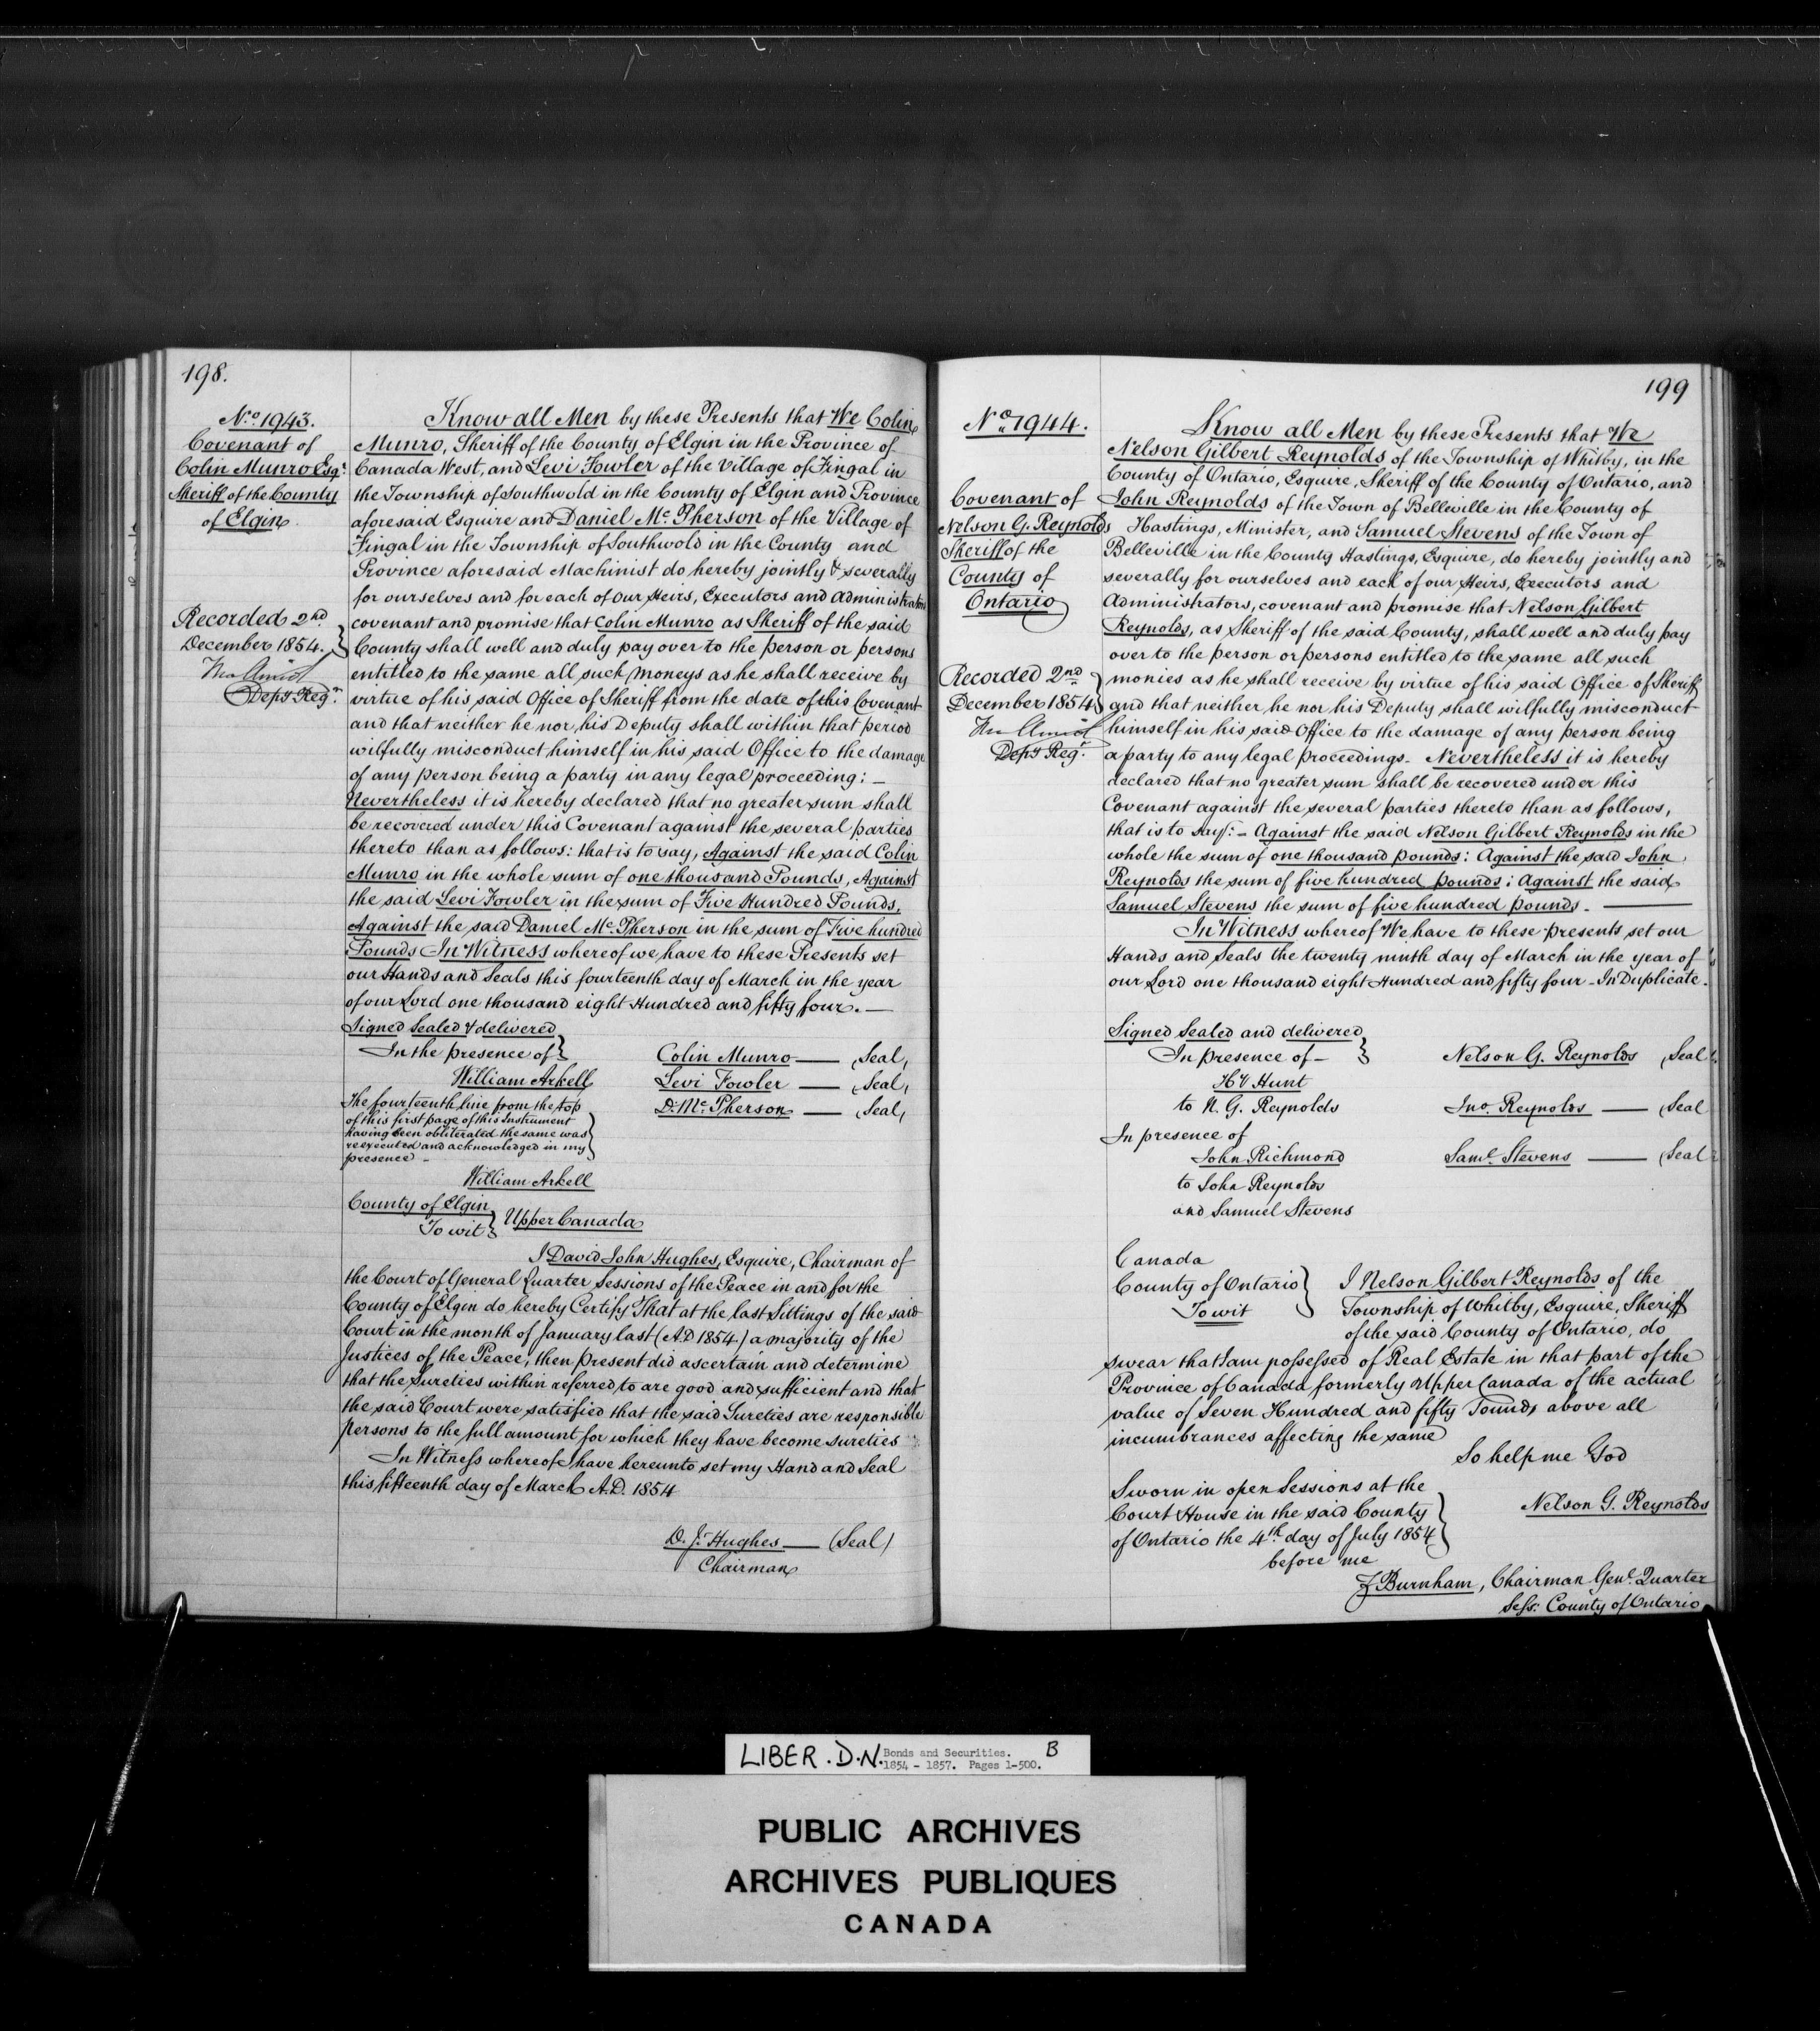 198.
No. 1943.
Covenant of
Colin Munro Esqr.
Sheriff of the County
of Elgin.
Recorded 2nd
December 1854.
Depy Regr.
Know all Men by these Presents that We Colin
Munro, Sheriff of the County of Elgin in the Province of
Canada West, and Levi Fowler of the Village of Fingal in
the Township of Southwold in the County of Elgin and Province
aforesaid Esquire and Daniel Mc.Pherson of the Village of
Fingal in the Township of Southwold in the County and
Province aforesaid Machinist do hereby jointly & severally
for ourselves and for each of our Heirs, Executors and administrators
covenant and promise that Colin Munro as Sheriff of the said
County shall well and duly pay over to the person or persons
entitled to the same all such moneys as he shall receive by
virtue of his said Office of Sheriff from the date of this Covenant
and that neither he nor his Deputy shall within that period
wilfully misconduct himself in his said Office to the damage
of any person being a party in any legal proceeding: —
Nevertheless it is hereby declared that no greater sum shall
be recovered under this Covenant against the several parties
thereto than as follows: that is to say, Against the said Colin
Munro in the whole sum of one thousand Pounds, Against
the said Levi Fowler in the sum of Five Hundred Pounds,
Against the said Daniel Mc.Pherson in the sum of Five hundred
Pounds — In Witness whereof we have to these Presents set
our Hands and Seals this fourteenth day of March in the year
of our Lord one thousand eight Hundred and fifty four. —
Signed Sealed & delivered
In the presence of } Colin Munro — (Seal)
William Arkell Levi Fowler — (Seal)
The fourteenth line from the top D. Mc.Pherson — (Seal)
of this first page of this Instrument
having been obliterated the same was
reexecuted and acknowledged in my
presence —
William Arkell
County of Elgin
To wit } Upper Canada
I David John Hughes, Esquire, Chairman of
the Court of General Quarter Sessions of the Peace in and for the
County of Elgin do hereby Certify That at the last Sittings of the said
Court in the month of January last (A.D 1854.) a majority of the
Justices of the Peace, then present did ascertain and determine
that the Sureties within referred to are good and sufficient and that
the said Court were satisfied that the said Sureties are responsible
Persons to the full amount for which they have become sureties
In Witness whereof I have hereunto set my Hand and Seal
this fifteenth day of March A.D. 1854
D. J. Hughes — (Seal)
Chairman
199
No. 1944.
Covenant of
Nelson G. Reynolds
Sheriff of the
County of
Ontario
Recorded 2nd
December 1854
Depy Regr.
Know all Men by these Presents that We
Nelson Gilbert Reynolds of the Township of Whitby, in the
County of Ontario, Esquire, Sheriff of the County of Ontario, and
John Reynolds of the Town of Belleville in the County of
Hastings, Minister, and Samuel Stevens of the Town of
Belleville in the County Hastings, Esquire, do hereby jointly and
severally for ourselves and each of our Heirs, Executors and
Administrators, covenant and promise that Nelson Gilbert
Reynolds, as Sheriff of the said County, shall well and duly pay
over to the person or persons entitled to the same all such
monies as he shall receive by virtue of his said Office of Sheriff
and that neither he nor his Deputy shall wilfully misconduct
himself in his said Office to the damage of any person being
a party to any legal proceedings — Nevertheless it is hereby
declared that no greater sum shall be recovered under this
Covenant against the several parties thereto than as follows,
that is to say: — Against the said Nelson Gilbert Reynolds in the
whole the sum of one thousand pounds: Against the said John
Reynolds the sum of five hundred pounds: Against the said
Samuel Stevens the sum of five hundred pounds. —
In Witness whereof We have to these presents set our
Hands and Seals the twenty ninth day of March in the year of
our Lord one thousand eight Hundred and fifty four — In Duplicate.
Signed Sealed and delivered
In presence of — } Nelson G. Reynolds (Seal)
Hy Hunt
to N. G. Reynolds Jno. Reynolds — (Seal)
In presence of
John Richmond Saml. Stevens — (Seal)
to John Reynolds
and Samuel Stevens
Canada
County of Ontario } I Nelson Gilbert Reynolds of the
To wit Township of Whitby, Esquire, Sheriff
of the said County of Ontario, do
swear that I am possessed of Real Estate in that part of the
Province of Canada formerly Upper Canada of the actual
value of Seven Hundred and fifty Pounds above all
incumbrances affecting the same
So help me God
Sworn in open Sessions at the
Court House in the said County Nelson G. Reynolds
of Ontario the 4th day of July 1854
before me
Z Burnham, Chairman Genl. Quarter
Sess: County of Ontario
LIBER. D.N. Bonds and Securities. B
1854 - 1857. Pages 1-500.
PUBLIC ARCHIVES
ARCHIVES PUBLIQUES
CANADA